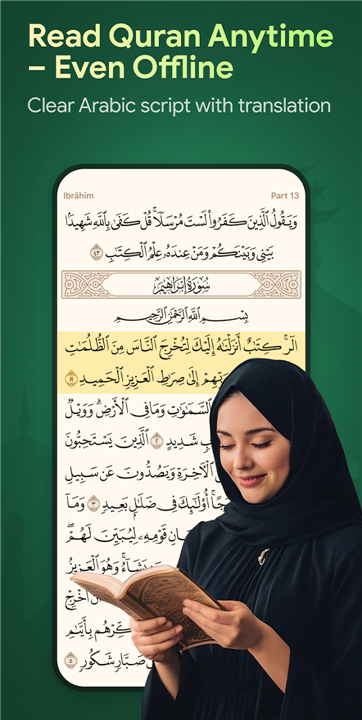 Read Quran Anytime
– Even Offline
Clear Arabic script with translation
Ibrāhīm
Part 13
وَيَقُولُ ٱلَّذِينَ كَفَرُوا۟ لَسْتَ مُرْسَلًا ۚ قُلْ كَفَىٰ بِٱللَّهِ شَهِيدًۢا
بَيْنِى وَبَيْنَكُمْ وَمَنْ عِندَهُۥ عِلْمُ ٱلْكِتَٰبِ
سُورَةُ إِبْرَاهِيم
بِسْمِ ٱللَّهِ ٱلرَّحْمَٰنِ ٱلرَّحِيمِ
الٓر ۚ كِتَٰبٌ أَنزَلْنَٰهُ إِلَيْكَ لِتُخْرِجَ ٱلنَّاسَ مِنَ ٱلظُّلُمَٰتِ
إِلَىٰ صِرَٰطِ ٱلْعَزِيزِ ٱلْحَمِيدِ
ٱلسَّمَٰوَٰتِ وَمَا فِى ٱلْأَرْضِ ۗ وَوَيْلٌ
شَدِيدٍ ٢ ٱلَّذِينَ يَسْتَحِبُّونَ
ٱلْءَاخِرَةِ وَيَصُدُّونَ عَن سَبِيلِ
أُو۟لَٰٓئِكَ فِى ضَلَٰلٍۭ بَعِيدٍ ٣ وَمَآ
قَوْمِهِۦ لِيُبَيِّنَ لَهُمْ ۖ
يَشَآءُ ۚ وَهُوَ ٱلْعَزِيزُ
أَخْرِجْ
بِأَيَّىٰمِ
صَبَّارٍ شَكُورٍ ٥